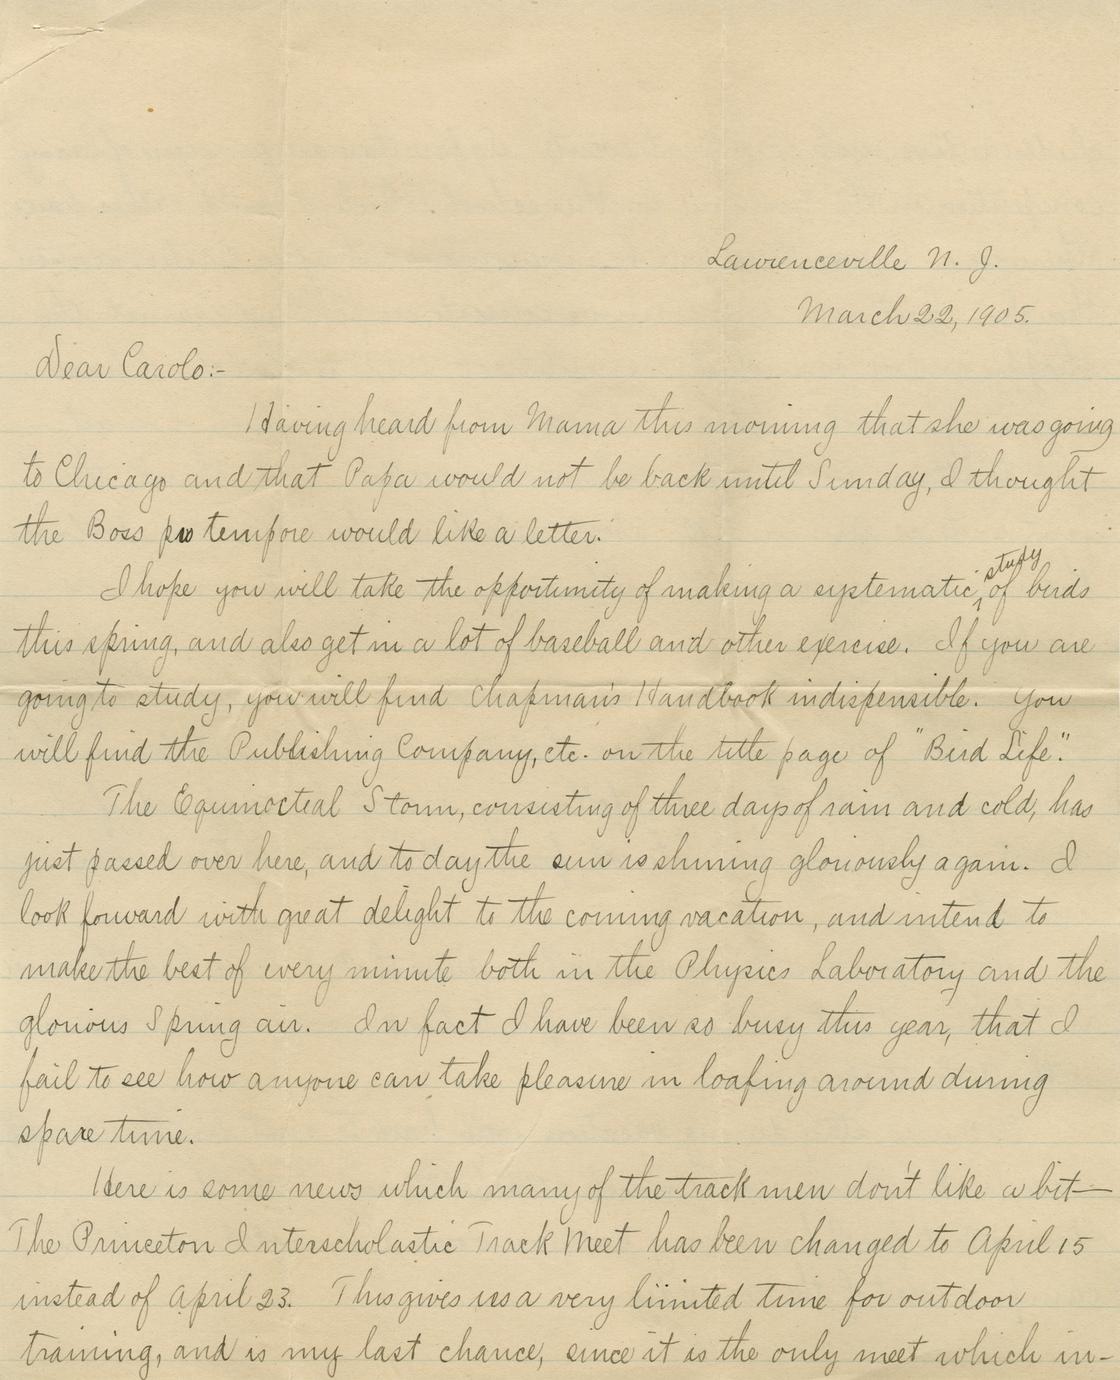 Lawrenceville N. J.
March 22, 1905.
Dear Carolo:-
Having heard from Mama this morning that she was going
to Chicago and that Papa would not be back until Sunday, I thought
the Boss pro tempore would like a letter.
I hope you will take the opportunity of making a systematic study of birds
this spring, and also get in a lot of baseball and other exercise. If you are
going to study, you will find Chapman's Handbook indispensible. You
will find the Publishing Company, etc. on the title page of "Bird Life".
The Equinoctial Storm, consisting of three days of rain and cold, has
just passed over here, and to day the sun is shining gloriously again. I
look forward with great delight to the coming vacation, and intend to
make the best of every minute both in the Physics Laboratory and the
glorious Spring air. In fact I have been so busy this year, that I
fail to see how anyone can take pleasure in loafing around during
spare time.
Here is some news which many of the track men don't like a bit—
The Princeton Interscholastic Track Meet has been changed to April 15
instead of April 23. This gives us a very limited time for outdoor
training, and is my last chance, since it is the only meet which in-